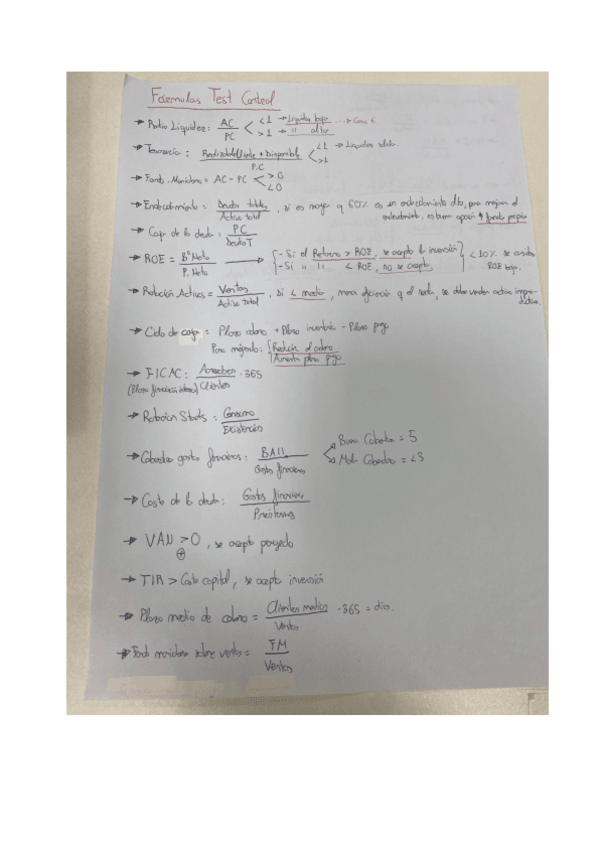 Formulas Test Control
→ Ratio Liquidez: AC / PC < <1 → Liquidez baja
>1 → " alta
→ Tesorería: Realizable + Disponible / P.C < <1 → Liquidez
>1
→ Fondo Maniobra = AC - PC < >0
<0
→ Endeudamiento = Deudas totales / Activo total , si es mayor q 60% es un endeudamiento alto, para mejorar el
endeudamiento, es buena opción ↑ fondos propios
→ Cap. de la deuda: P.C / Deuda T
→ ROE = Bº Neto / P. Neto → - Si el Retorno > ROE, se acepta la inversión
- Si " " < ROE, no se acepta
< 10% se considera
ROE bajo.
→ Rotación Activos = Ventas / Activo total , si < media, menor eficiencia q el resto, se deben vender activos impro-
ductivos.
→ Ciclo de caja = Plazo cobro + Plazo inventario - Plazo pago
Para mejorarlo: Reducir el cobro
Aumentar plazo pago
→ · 365
Clientes
→ Rotación Stocks = Consumo / Existencias
→ Cobertura gastos financieros: BAII / Gastos financieros
Buena Cobertura = 5
Mala Cobertura = <3
→ Coste de la deuda: Gastos financieros / Préstamos
→ VAN > 0, se acepta proyecto
+
→ TIR > Coste capital, se acepta inversión
→ Plazo medio de cobro = Clientes medios / Ventas · 365 = días.
→ Fondo maniobra sobre ventas = FM / Ventas